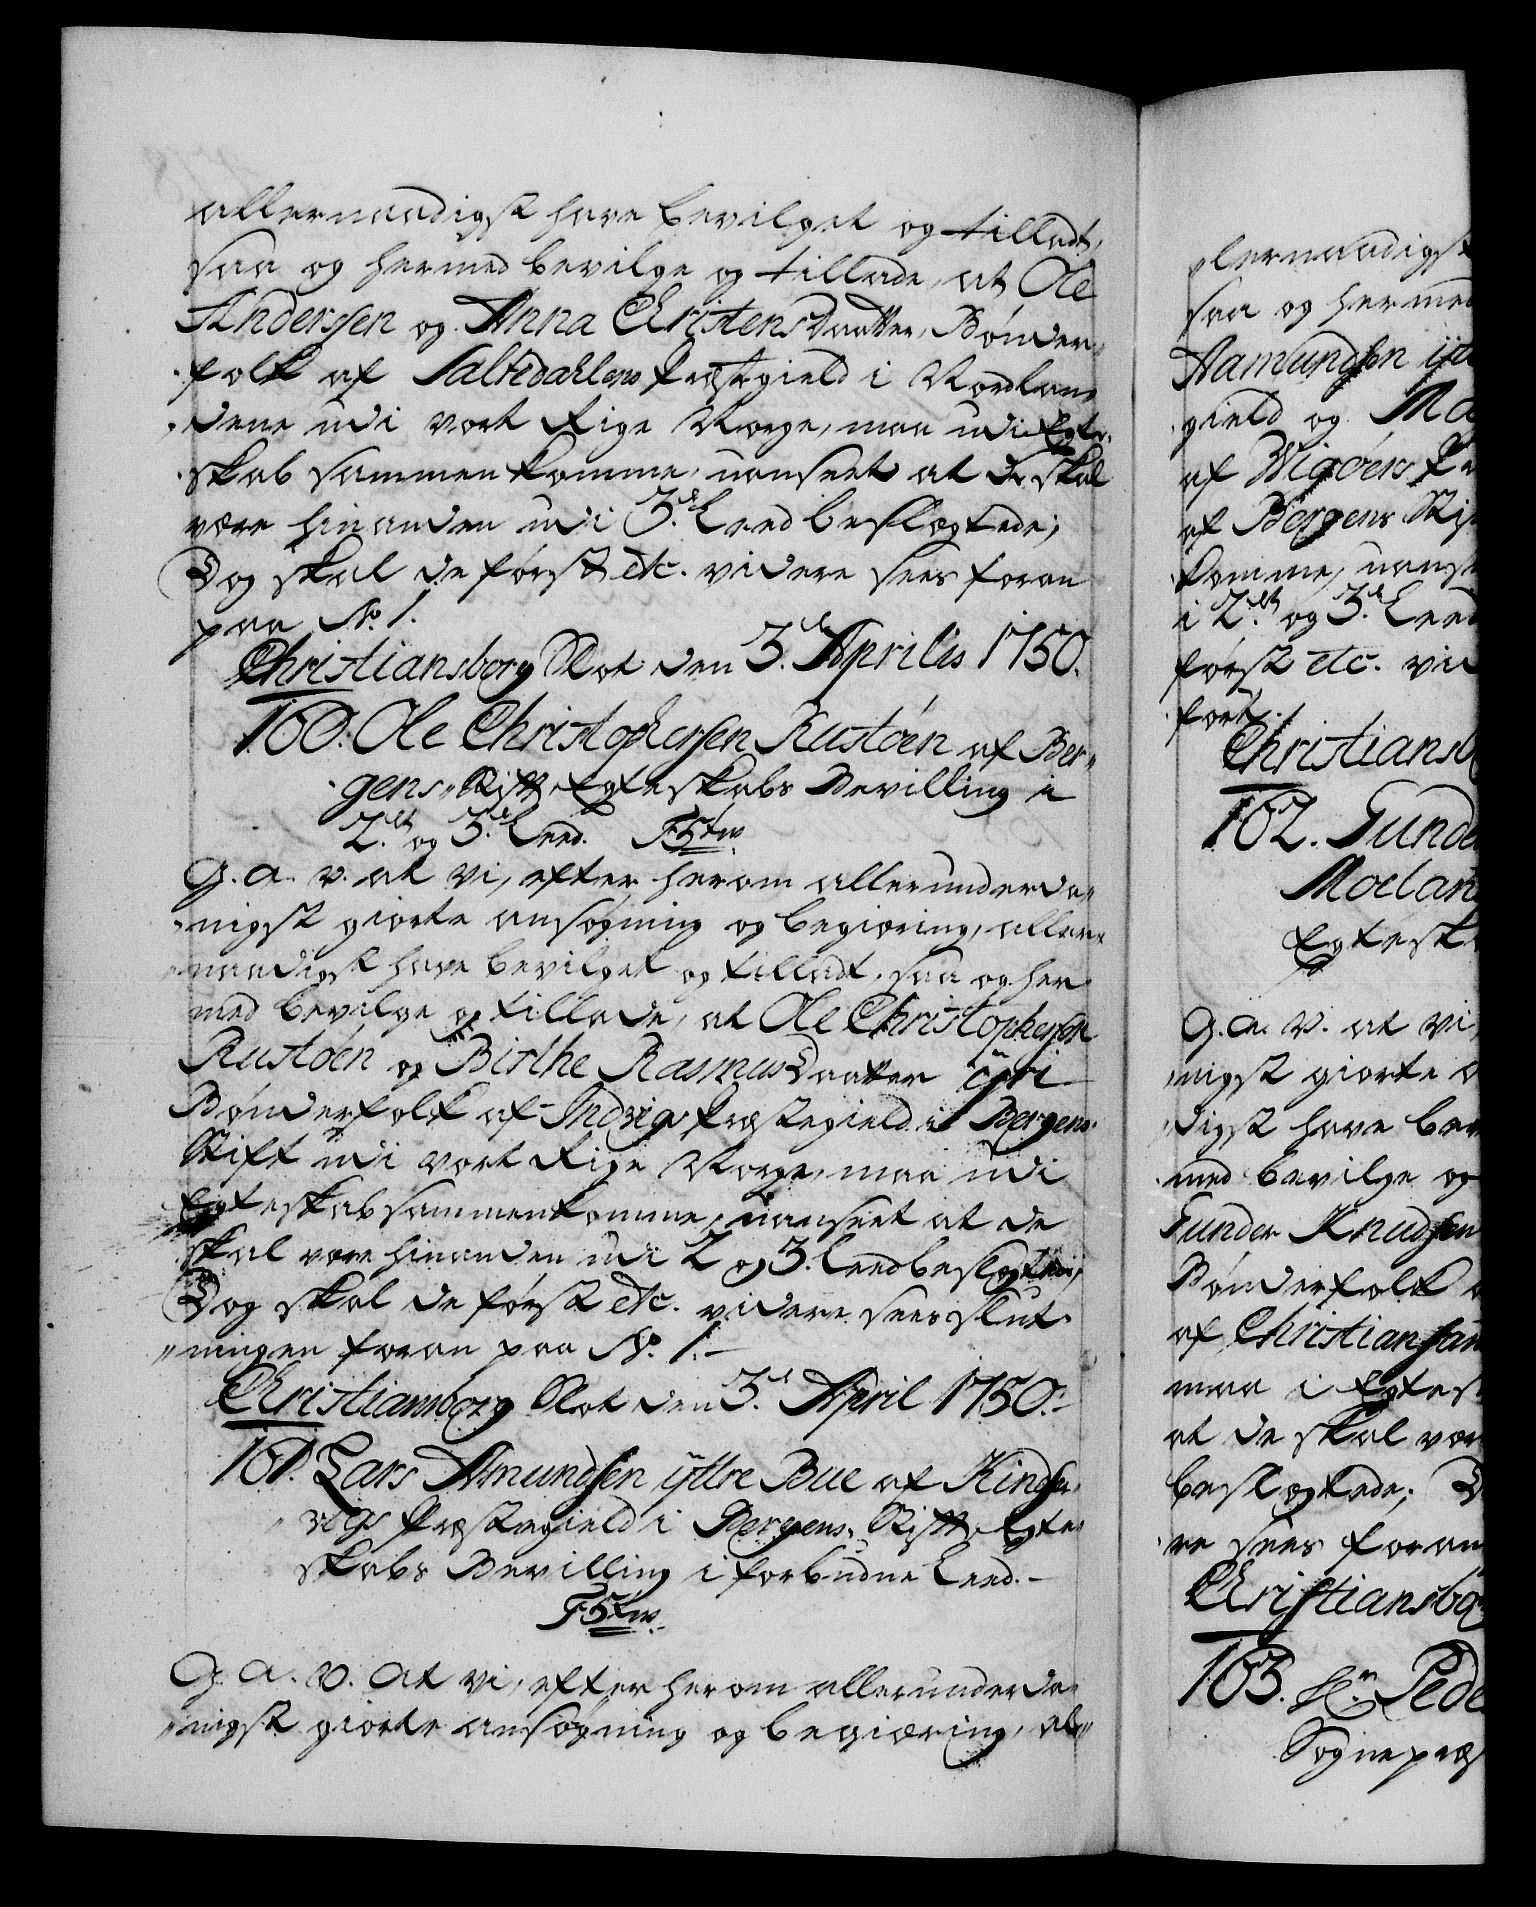 allernaadigst have bevilget og tilladt,
saa og hermed bevilge og tillade, at Ole
Anderssen og Anna Christens Daatter, Bønder-
folk af Saltedahlens Præstegield i Nordlan-
dene udi vort Rige Norge, maa udi Egte-
skab sammenkomme, uanseet at de skal
være hinanden udi 3.de Leed beslægtede;
Dog skal de først etc. videre sees foran
paa No. 1.
Christiansborg Slot den 3.de Aprilis 1750.
160. Ole Christophersen Rustøen af Ber-
gens Stift, Egteskabs Bevilling i
2.det og 3.de Leed.
G. a. V. at Vi, efter herom allerunderda-
nigst giorte ansøgning og begiæring, aller-
naadigst have bevilget og tilladt, saa og her-
med bevilge og tillade, at Ole Christophersen
Rustøen og Birthe Rasmus Daatter
Bønderfolk af Indvigs Præstegield i Bergens
Stift udi vort Rige Norge, maa udi
Egteskab sammenkomme, uanseet at de
skal være hinanden udi 2 og 3. Leed beslægtede;
Dog skal de først etc. videre sees slut-
ningen foran paa No. 1.
Christiansborg Slot den 3.de April 1750.
161. Lars Amundsen ÿttre Bue af Kinser-
vigs Præstegield i Bergens Stift, Egte-
skabs Bevilling i forbudne Leed.
G. a. V. at Vi, efter herom allerunderda-
nigst giorte ansøgning og begiæring, al-
lernaadigst
saa og hermed
Aamundsen
gield og
af Wigøers
af Bergens Stift
komme, uanseet
i 2.det og 3.de Leed
først etc.
Christiansb
162. Gunder
Moeland
Egtesk
G. a. V. at Vi,
nigst giorte
digst have bev
med bevilge og
Gunder Knudsen
Bønderfolk
af Christiansan
maa i Egtes
at de skal vær
beslægtede; D
re sees foran
Christiansbo
163. Hr. Pede
Sognepræs